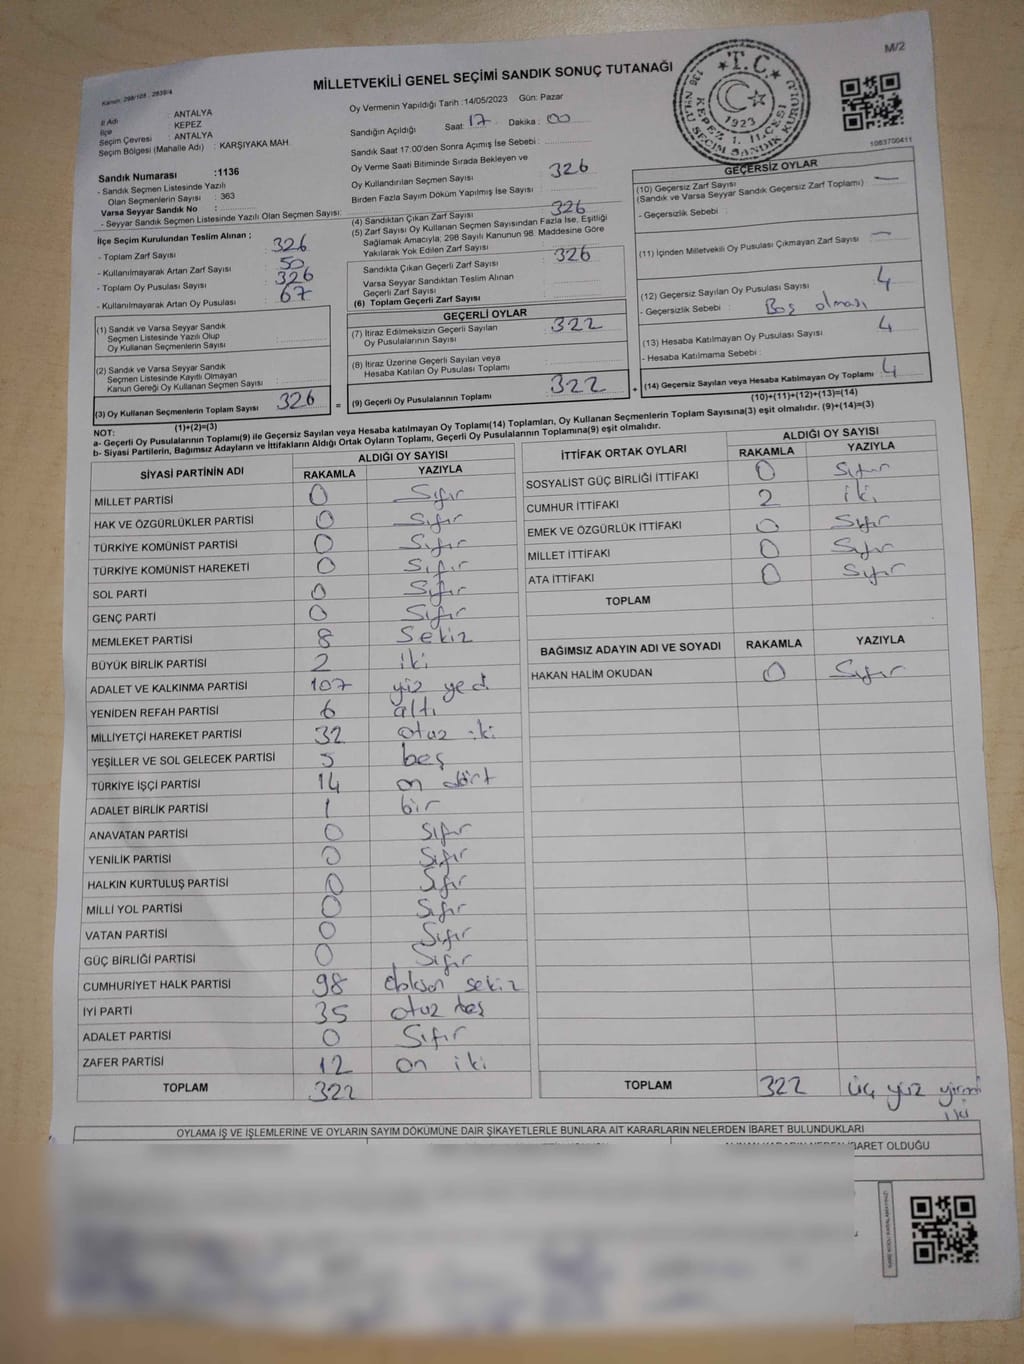 M/2
Kanun: 298/105 , 2839/4
MİLLETVEKİLİ GENEL SEÇİMİ SANDIK SONUÇ TUTANAĞI
İl Adı : ANTALYA
İlçe : KEPEZ
Seçim Çevresi : ANTALYA
Seçim Bölgesi (Mahalle Adı) : KARŞIYAKA MAH.
Sandık Numarası :1136
- Sandık Seçmen Listesinde Yazılı
Olan Seçmenlerin Sayısı : 363
Varsa Seyyar Sandık No :
- Seyyar Sandık Seçmen Listesinde Yazılı Olan Seçmen Sayısı:
Oy Vermenin Yapıldığı Tarih :14/05/2023 Gün: Pazar
Sandığın Açıldığı Saat: 17 Dakika : 00
Sandık Saat 17:00'den Sonra Açımış İse Sebebi :
Oy Verme Saati Bitiminde Sırada Bekleyen ve
Oy Kullandırılan Seçmen Sayısı : 326
Birden Fazla Sayım Döküm Yapılmış İse Sayısı :
T.C.
KEPEZ 1. İLÇESİ
1923
1136 NOLU SEÇİM SANDIK KURULU
1083700411
İlçe Seçim Kurulundan Teslim Alınan ;
- Toplam Zarf Sayısı : 326
- Kullanılmayarak Artan Zarf Sayısı : 50
- Toplam Oy Pusulası Sayısı : 326
- Kullanılmayarak Artan Oy Pusulası : 67
(1) Sandık ve Varsa Seyyar Sandık
Seçmen Listesinde Yazılı Olup
Oy Kullanan Seçmenlerin Sayısı :
(2) Sandık ve Varsa Seyyar Sandık
Seçmen Listesinde Kayıtlı Olmayan
Kanun Gereği Oy Kullanan Seçmen Sayısı :
(3) Oy Kullanan Seçmenlerin Toplam Sayısı : 326
(1)+(2)=(3)
(4) Sandıktan Çıkan Zarf Sayısı : 326
(5) Zarf Sayısı Oy Kullanan Seçmen Sayısından Fazla İse, Eşitliği
Sağlamak Amacıyla; 298 Sayılı Kanunun 98. Maddesine Göre
Yakılarak Yok Edilen Zarf Sayısı :
Sandıkta Çıkan Geçerli Zarf Sayısı : 326
Varsa Seyyar Sandıktan Teslim Alınan
Geçerli Zarf Sayısı :
(6) Toplam Geçerli Zarf Sayısı :
GEÇERLİ OYLAR
(7) İtiraz Edilmeksizin Geçerli Sayılan
Oy Pusulalarının Sayısı : 322
(8) İtiraz Üzerine Geçerli Sayılan veya
Hesaba Katılan Oy Pusulası Toplamı :
= (9) Geçerli Oy Pusulalarının Toplamı : 322
GEÇERSİZ OYLAR
(10) Geçersiz Zarf Sayısı : —
(Sandık ve Varsa Seyyar Sandık Geçersiz Zarf Toplamı)
- Geçersizlik Sebebi :
(11) İçinden Milletvekili Oy Pusulası Çıkmayan Zarf Sayısı : —
(12) Geçersiz Sayılan Oy Pusulası Sayısı : 4
- Geçersizlik Sebebi : Boş olması
(13) Hesaba Katılmayan Oy Pusulası Sayısı : 4
- Hesaba Katılmama Sebebi :
+ (14) Geçersiz Sayılan veya Hesaba Katılmayan Oy Toplamı : 4
(10)+(11)+(12)+(13)=(14)
NOT:
a- Geçerli Oy Pusulalarının Toplamı(9) ile Geçersiz Sayılan veya Hesaba katılmayan Oy Toplamı(14) Toplamları, Oy Kullanan Seçmenlerin Toplam Sayısına(3) eşit olmalıdır. (9)+(14)=(3)
b- Siyasi Partilerin, Bağımsız Adayların ve İttifakların Aldığı Ortak Oyların Toplamı, Geçerli Oy Pusulalarının Toplamına(9) eşit olmalıdır.
SİYASİ PARTİNİN ADI ALDIĞI OY SAYISI
RAKAMLA YAZIYLA
MİLLET PARTİSİ 0 Sıfır
HAK VE ÖZGÜRLÜKLER PARTİSİ 0 Sıfır
TÜRKİYE KOMÜNİST PARTİSİ 0 Sıfır
TÜRKİYE KOMÜNİST HAREKETİ 0 Sıfır
SOL PARTİ 0 Sıfır
GENÇ PARTİ 0 Sıfır
MEMLEKET PARTİSİ 8 Sekiz
BÜYÜK BİRLİK PARTİSİ 2 iki
ADALET VE KALKINMA PARTİSİ 107 yüz yedi
YENİDEN REFAH PARTİSİ 6 altı
MİLLİYETÇİ HAREKET PARTİSİ 32 otuz iki
YEŞİLLER VE SOL GELECEK PARTİSİ 5 beş
TÜRKİYE İŞÇİ PARTİSİ 14 on dört
ADALET BİRLİK PARTİSİ 1 bir
ANAVATAN PARTİSİ 0 Sıfır
YENİLİK PARTİSİ 0 Sıfır
HALKIN KURTULUŞ PARTİSİ 0 Sıfır
MİLLİ YOL PARTİSİ 0 Sıfır
VATAN PARTİSİ 0 Sıfır
GÜÇ BİRLİĞİ PARTİSİ 0 Sıfır
CUMHURİYET HALK PARTİSİ 98 doksan sekiz
İYİ PARTİ 35 otuz beş
ADALET PARTİSİ 0 Sıfır
ZAFER PARTİSİ 12 on iki
TOPLAM 322
İTTİFAK ORTAK OYLARI ALDIĞI OY SAYISI
RAKAMLA YAZIYLA
SOSYALİST GÜÇ BİRLİĞİ İTTİFAKI 0 Sıfır
CUMHUR İTTİFAKI 2 iki
EMEK VE ÖZGÜRLÜK İTTİFAKI 0 Sıfır
MİLLET İTTİFAKI 0 Sıfır
ATA İTTİFAKI 0 Sıfır
TOPLAM
BAĞIMSIZ ADAYIN ADI VE SOYADI RAKAMLA YAZIYLA
HAKAN HALİM OKUDAN 0 Sıfır
TOPLAM 322 üç yüz yirmi
iki
OYLAMA İŞ VE İŞLEMLERİNE VE OYLARIN SAYIM DÖKÜMÜNE DAİR ŞİKAYETLERLE BUNLARA AİT KARARLARIN NELERDEN İBARET BULUNDUKLARI
İBARET OLDUĞU